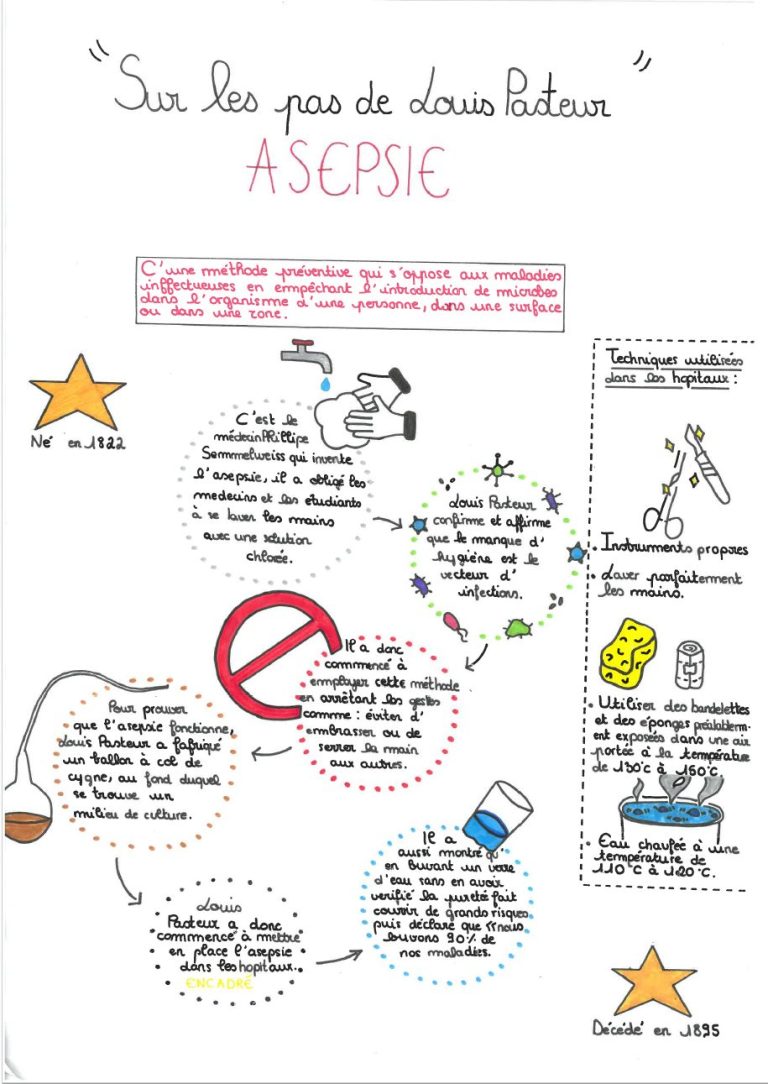 "Sur les pas de Louis Pasteur"
ASEPSIE
C'une méthode préventive qui s'oppose aux maladies
inffectueuses en empêchant l'introduction de microbes
dans l'organisme d'une personne, dans une surface
ou dans une zone.
Né en 1822
C'est le
médecin Phillipe
Semmelweiss qui invente
l'asepsie, il a obligé les
medecins et les étudiants
à se laver les mains
avec une solution
chlorée.
Louis Pasteur
confirme et affirme
que le manque d'
hygiène est le
vecteur d'
infections.
Il a donc
commencé à
employer cette méthode
en arrêtant les gestes
comme : éviter d'
embrasser ou de
serrer la main
aux autres.
Pour prouver
que l'asepsie fonctionne,
Louis Pasteur a fabriqué
un ballon à col de
cygne, au fond duquel
se trouve un
milieu de culture.
Louis
Pasteur a donc
commencé à mettre
en place l'asepsie
dans les hopitaux.
ENCADRÉ
Il a
aussi montré qu'
en buvant un verre
d'eau sans en avoir
verifié la pureté fait
courir de grands risques,
puis déclaré que «nous
buvons 90% de
nos maladies.
Techniques utilisées
dans les hopitaux :
• Instruments propres
• Laver parfaitement
les mains.
• Utiliser des bandelettes
et des éponges préalablem-
ent exposées dans une air
portée à la température
de 130°c à 160°c.
• Eau chaufée à une
température de
110°C à 120°C.
Décédé en 1895